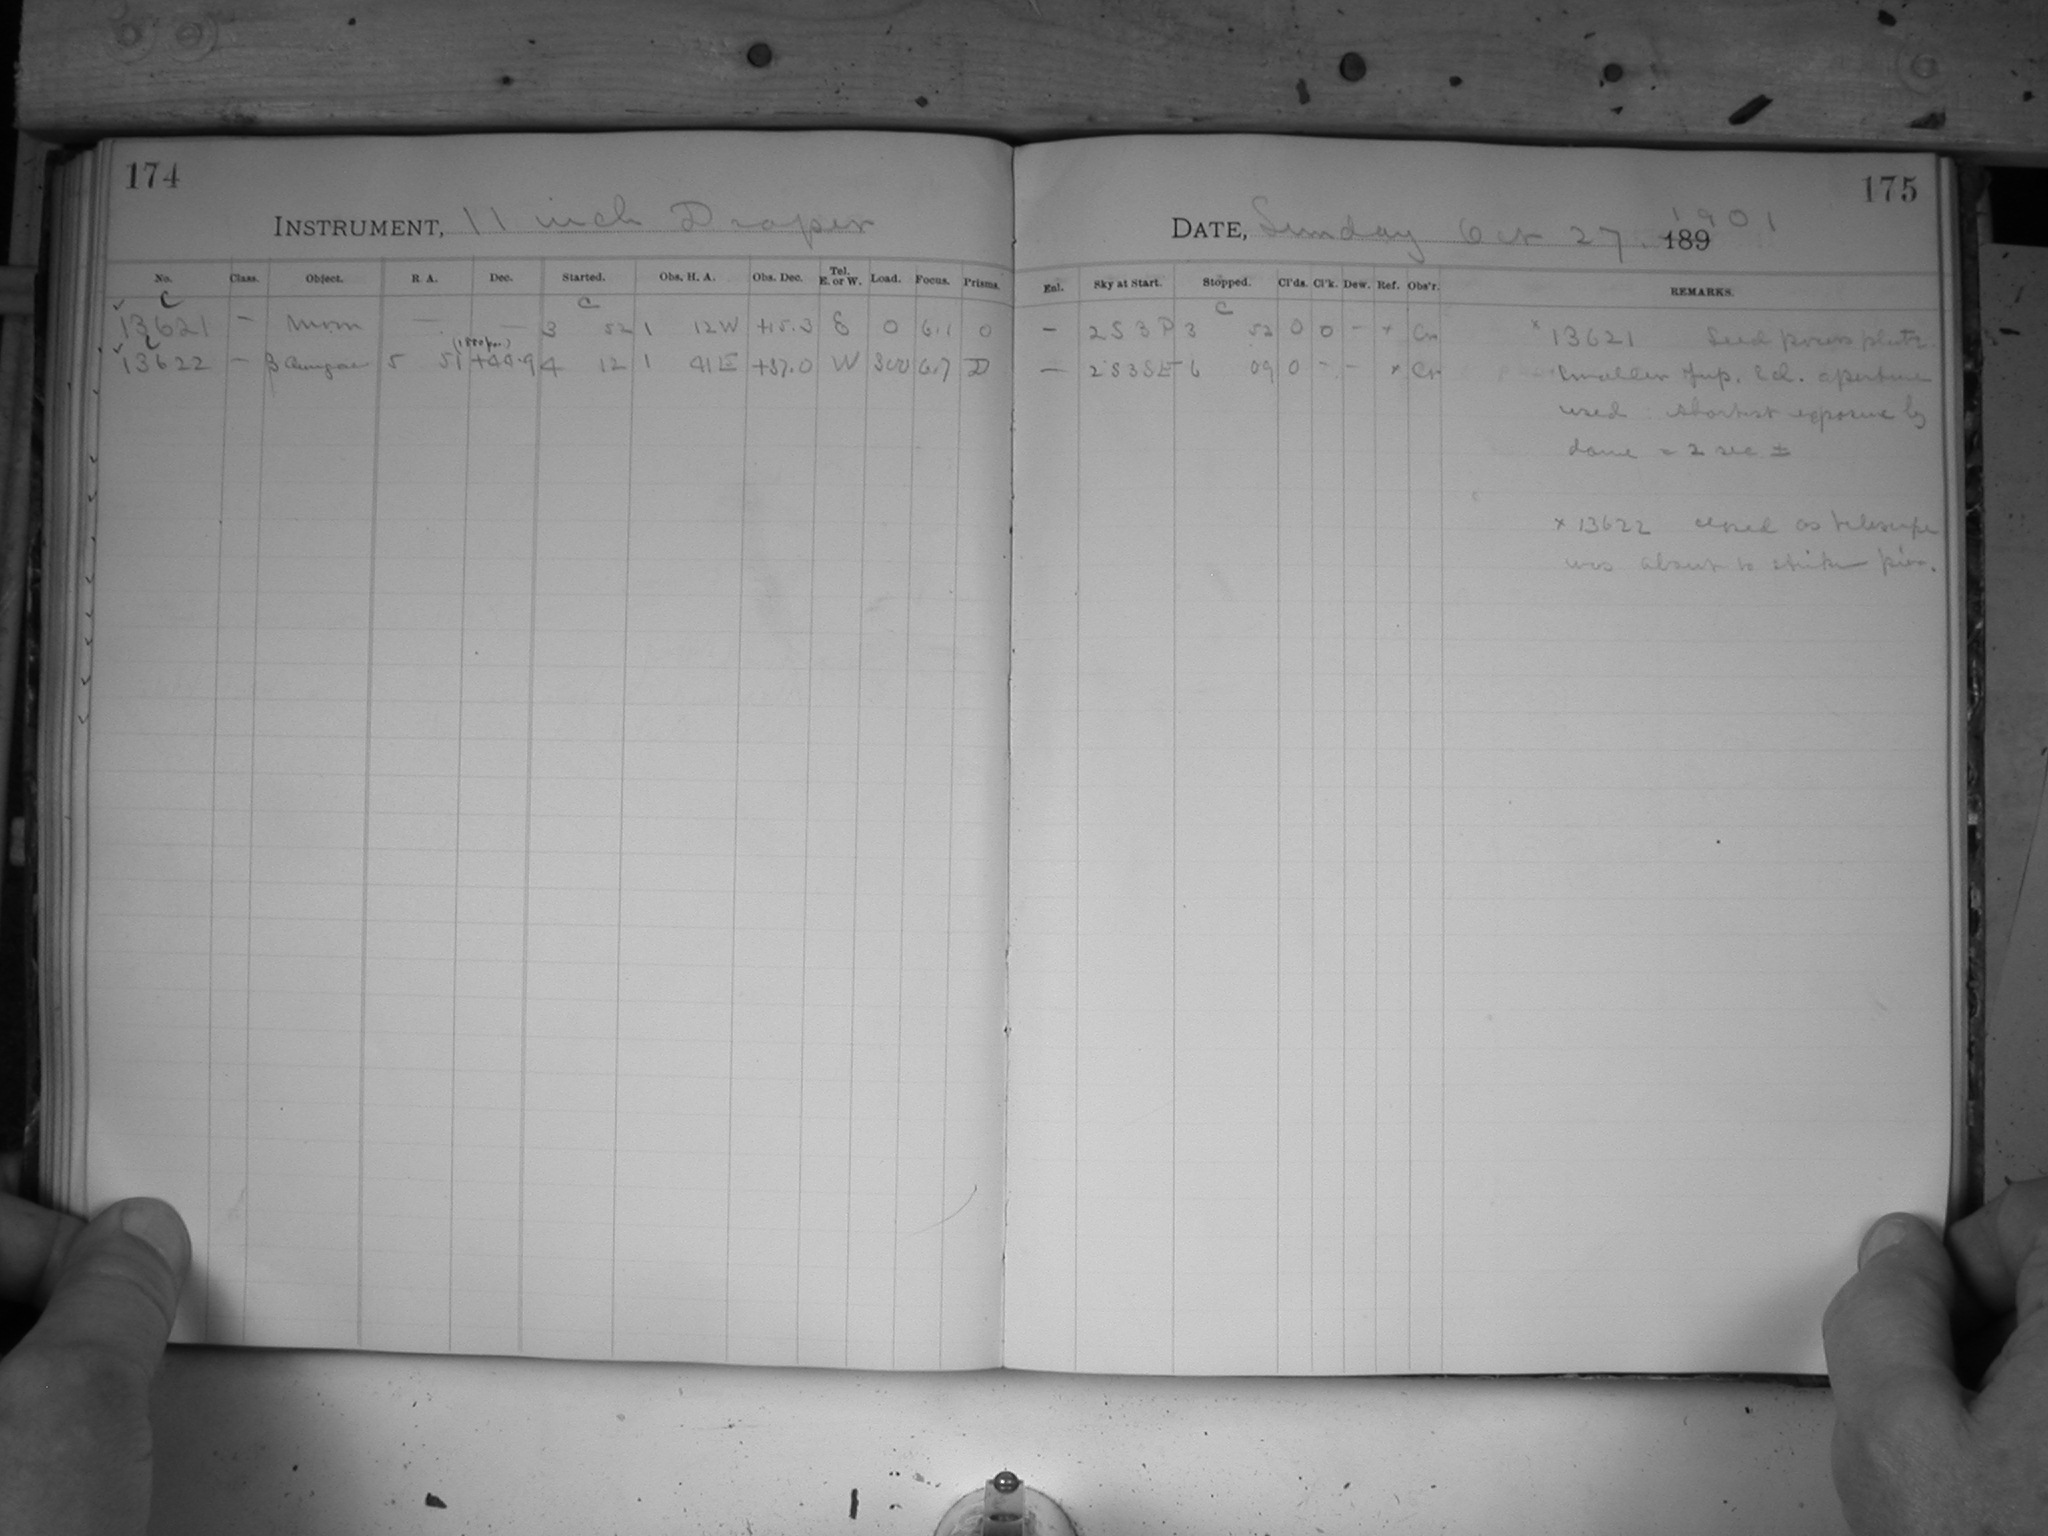 174
175
INSTRUMENT, 11 inch Draper
DATE, Sunday Oct 27. 189 1901
No. Class. Object. R. A. Dec. Started. Obs. H. A. Obs. Dec. Tel. E. or W. Load. Focus. Prisms. Enl. Sky at Start. Stopped. Cl'ds. Cl'k. Dew. Ref. Obs'r. REMARKS.
C C C
13621 – Moon — — 3 52 1 12 W +15.3 E 0 6.1 0 – 2 S 3 P 3 52 0 0 – × Cn × 13621 Seed process plate.
C (1880 pos.)
13622 – β Aurigae 5 51 +44.9 4 12 1 41 E +37.0 W 300 6.7 D — 2 S 3 S E 6 09 0 – – × Cn Smaller Jup. Ecl. aperture
used. Shortest exposure by
dome = 2 sec ±
× 13622 closed as telescope
was about to strike pier.